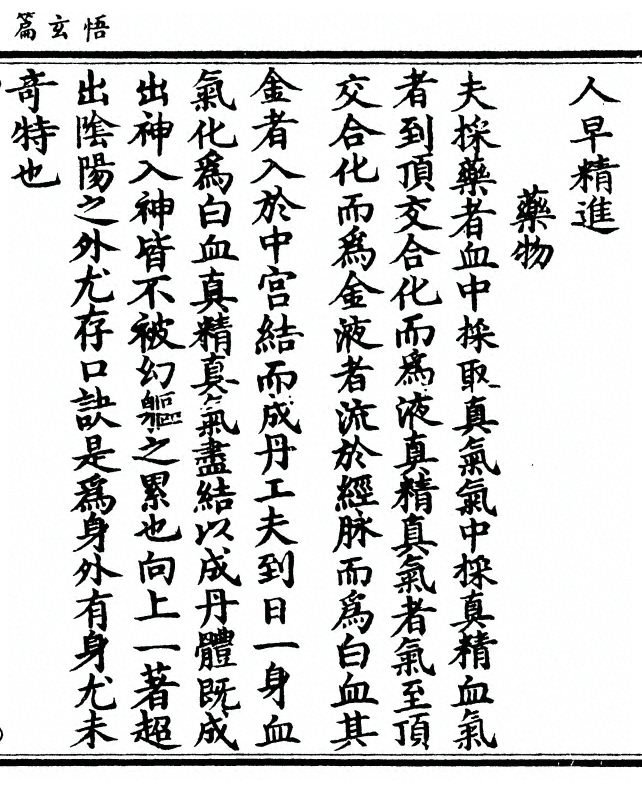 悟玄篇
人早精進
藥物
夫採藥者血中採取真氣氣中採真精血氣
者到頂交合化而爲液真精真氣者氣至頂
交合化而爲金液者流於經脉而爲白血其
金者入於中宮結而成丹工夫到日一身血
氣化爲白血真精真氣盡結以成丹體旣成
出神入神皆不被幻軀之累也向上一著超
出陰陽之外尤存口訣是爲身外有身尤未
奇特也